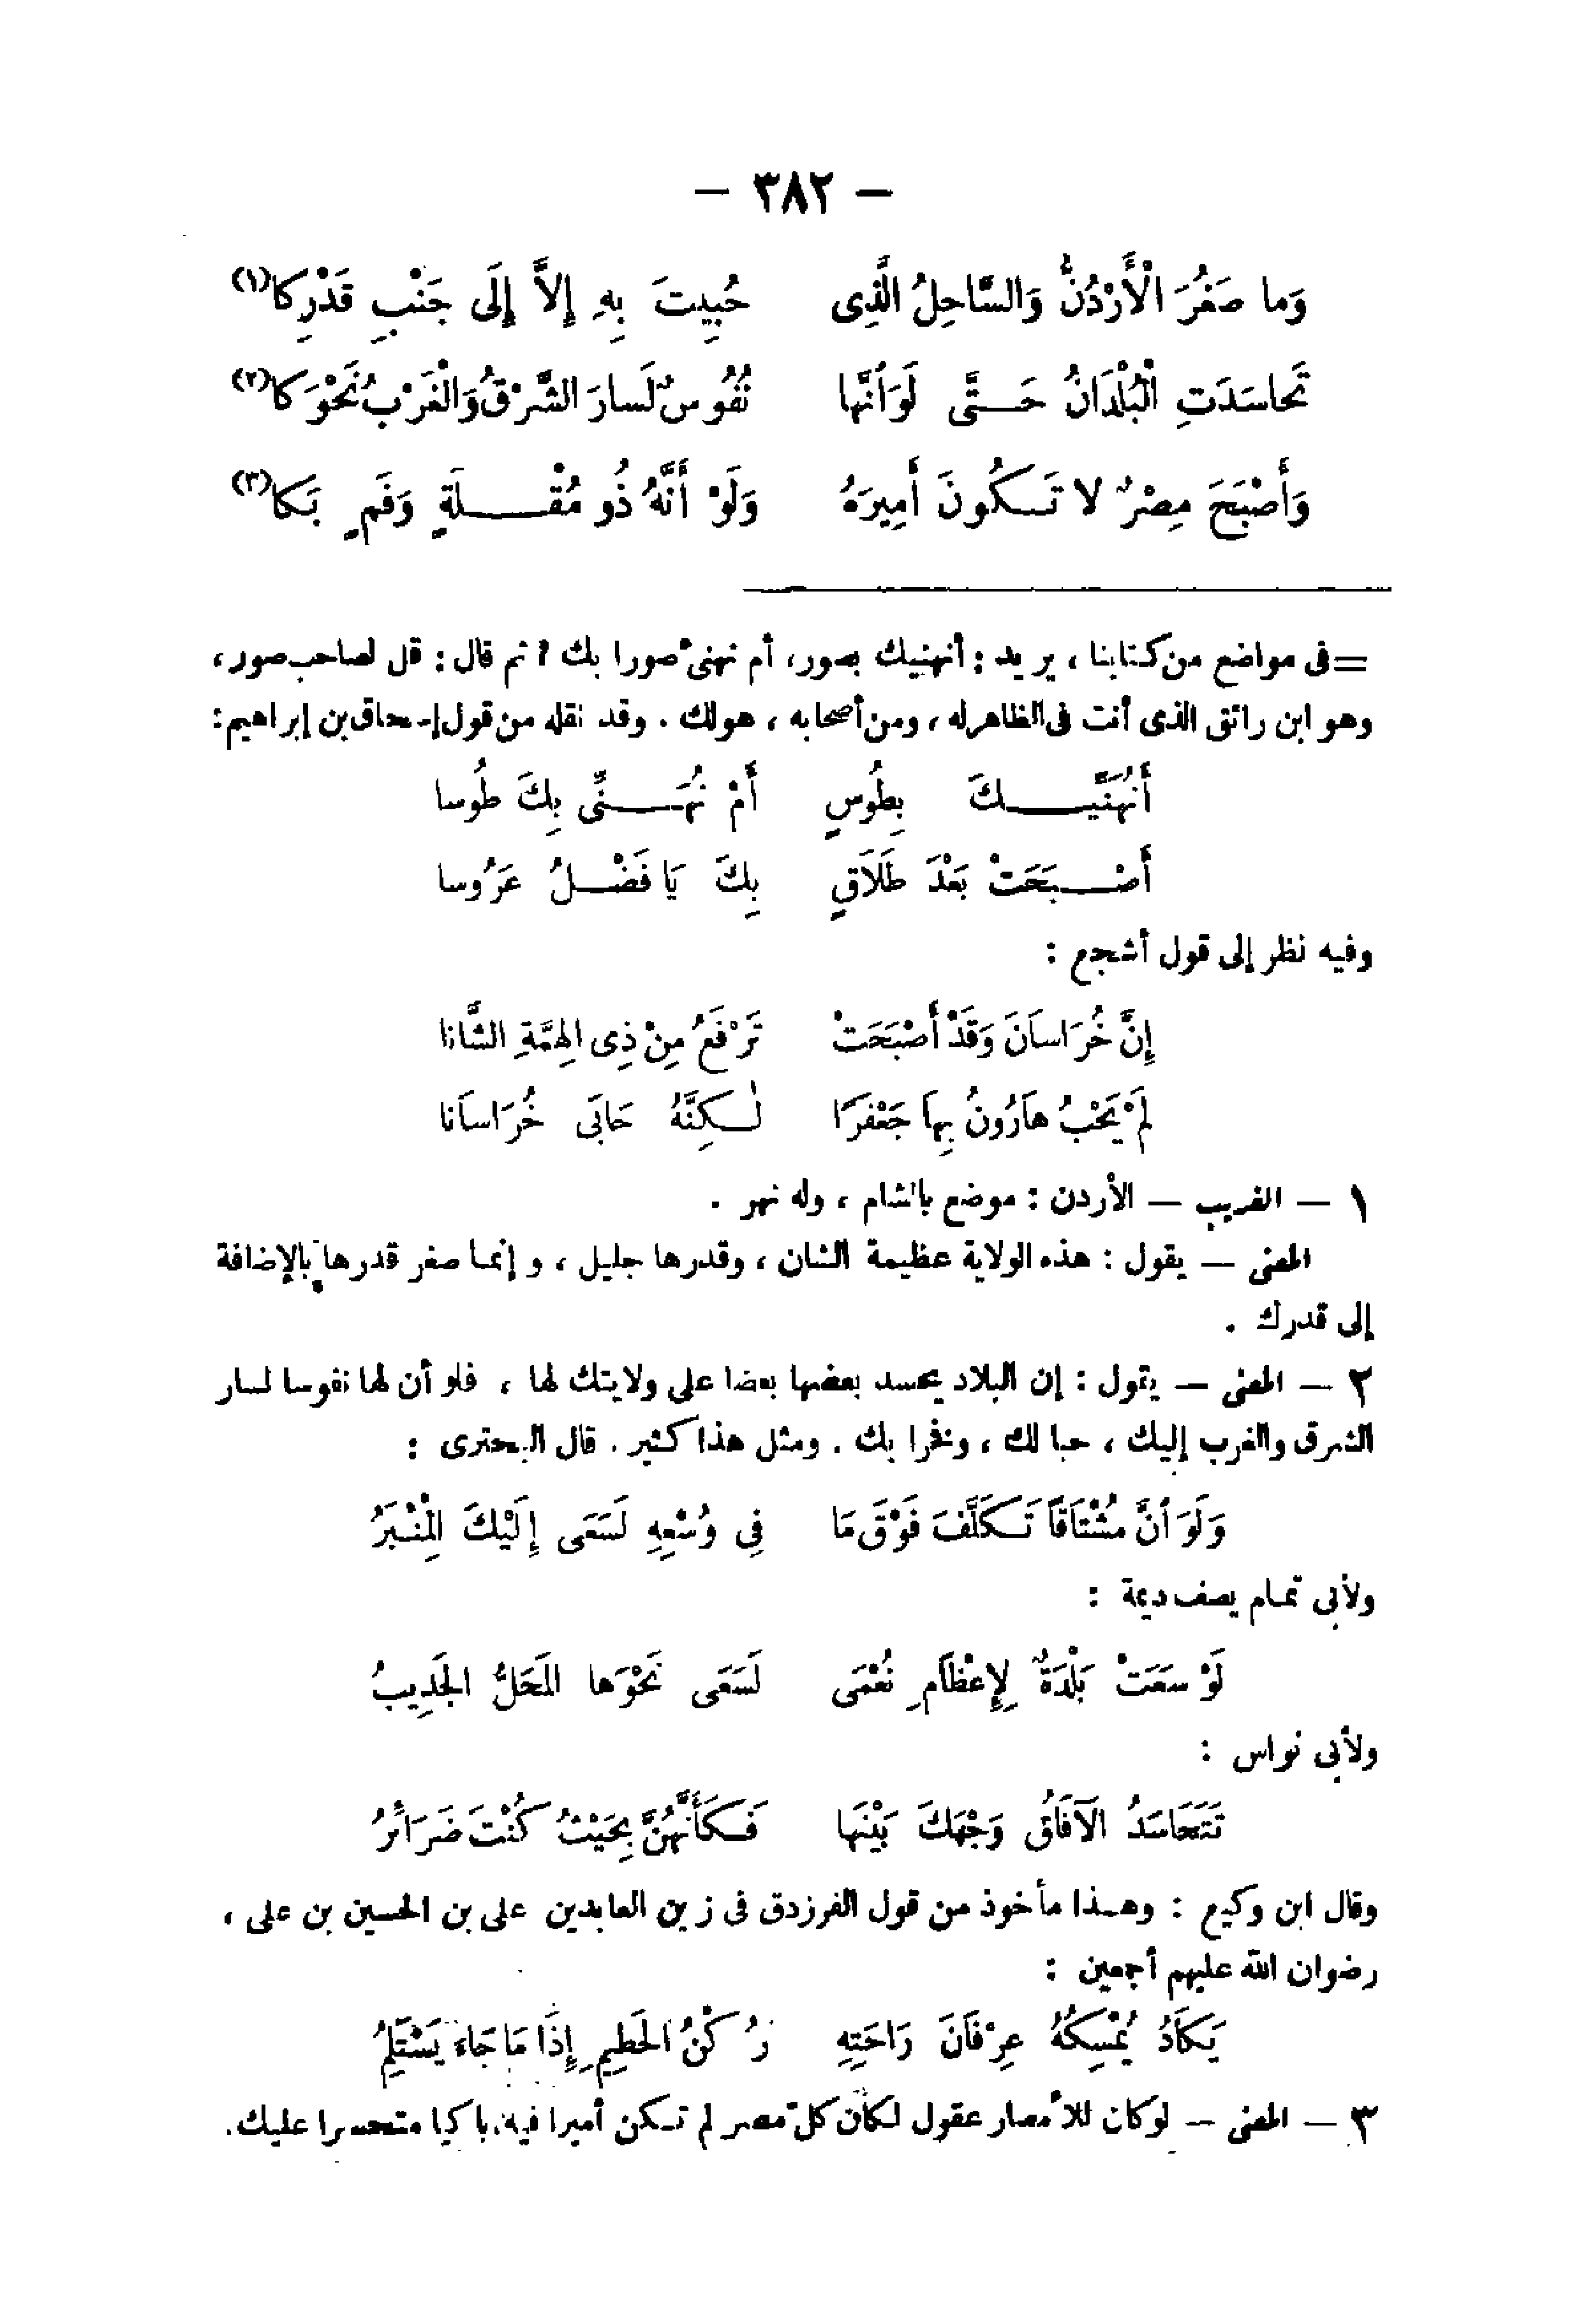 — ٣٨٢ —
وَما صَغُرَ الْأُرْدُنُّ وَالسَّاحِلُ الَّذِى حُبِيتَ بِهِ إِلاَّ إِلَى جَنْبِ قَدْرِكا(١)
تَحاسَدَتِ الْبُلْدَانُ حَتَّى لَوَ أنَّها نُفُوسٌ لَسارَ الشَّرْقُ وَالْغَرْبُ نَحْوَكا(٢)
وَأَصْبَحَ مِصْرٌ لا تَكُونَ أَمِيرَهُ وَلَوْ أَنَّهُ ذُو مُقْلَةٍ وَفَمٍ بَكا(٣)
= فى مواضع من كتابنا ، يريد : أنهنيك بصور، أم نهنىء صورا بك ؟ ثم قال : قل لصاحب صور ،
وهو ابن رائق الذى أنت فى الظاهر له ، ومن أصحابه ، هو لك . وقد نقله من قول إسحاق بن إبراهيم :
أَنُهَنِّيكَ بِطُوسٍ أَمْ نُهَنِّى بِكَ طُوسا
أَصْبَحَتْ بَعْدَ طَلَاقٍ بِكَ يَا فَضْلُ عَرُوسا
وفيه نظر إلى قول أشجع :
إِنَّ خُرَاسَانَ وَقَدْ أَصْبَحَتْ تَرْفَعُ مِنْ ذِى الهِمَّةِ الشَّانا
لَمْ يَحْبُ هَارُونُ بِهَا جَعْفَرًا لَكِنَّهُ حَابَى خُرَاسَانا
١ — الغريب — الأردن : موضع بالشام ، وله نهر .
المعنى — يقول : هذه الولاية عظيمة الشان ، وقدرها جليل ، وإنما صغر قدرها بالإضافة
إلى قدرك .
٢ — المعنى — يقول : إن البلاد يحسد بعضها بعضا على ولايتك لها ، فلو أن لها نفوسا لسار
الشرق والغرب إليك ، حبا لك ، وفخرا بك . ومثل هذا كثير . قال البحترى :
وَلَوَ أنَّ مُشْتَاقًا تَكَلَّفَ فَوْقَ مَا فِى وُسْعِهِ لَسَعَى إِلَيْكَ المِنْبَرُ
ولأبى تمام يصف ديمة :
لَوْ سَعَتْ بَلْدَةٌ لِإِعْظَامِ نُعْمَى لَسَعَى نَحْوَها المَحَلُّ الجَدِيبُ
ولأبى نواس :
تَتَحَاسَدُ الآفَاقُ وَجْهَكَ بَيْنَها فَكَأَنَّهُنَّ بِحَيْثُ كُنْتَ ضَرَائرُ
وقال ابن وكيع : وهذا مأخوذ من قول الفرزدق فى زين العابدين على بن الحسين بن على ،
رضوان الله عليهم أجمعين :
يَكَادُ يُمْسِكُهُ عِرْفَانَ رَاحَتِهِ رُكْنُ الحَطِيمِ إِذَا مَا جَاءَ يَسْتَلِمُ
٣ — المعنى — لو كان للأمصار عقول لكان كل مصر لم تكن أميرا فيه ، باكيا متحسرا عليك .